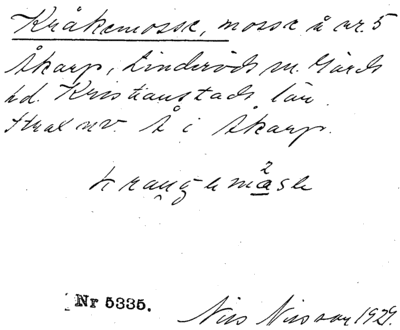 Kråkemosse, mosse å nr. 5
Åkarp, Linderöds sn. Gärds
hd. Kristianstads län.
Strax nv. Å i Åkarp.
2
Nr 5335.
Nils Nilsson 1929.